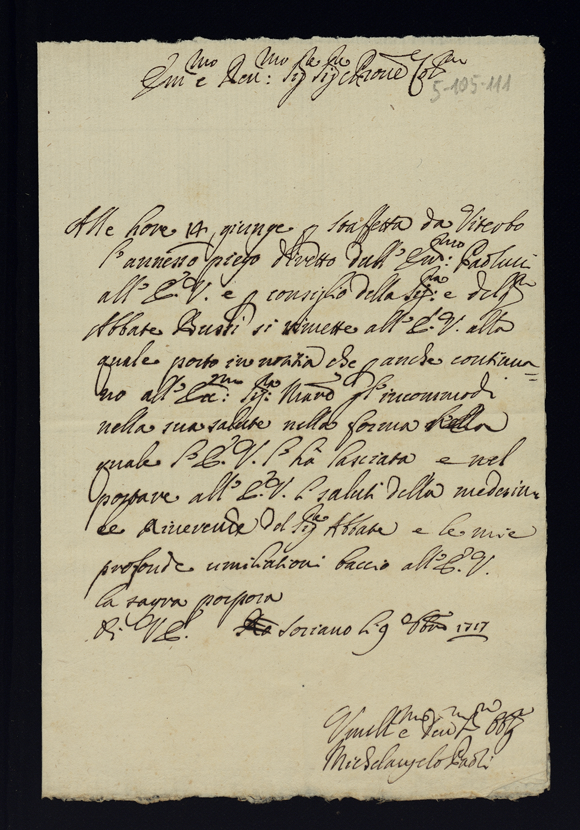 Em.mo e Rev.mo Sig.re Sig.r P.rone Col.mo
5-105-111
Alle hore 14 giunge p staffetta da Viterbo
l'annesso piego diretto dall' Em.mo Paolucci
all' E. V. e p consiglio della Sig.ra e del Sig.r
Abbate Bussi si rimette all' E. V. alla
quale porto in notizia che p anche continua=
no all' Ecc.ma Sig.ra gl' incommodi
nella sua salute nella forma
quale l' E. V. l' hà lasciata e nel
portare all' E. V. i saluti della medesima
e riverenze del Sig.re Abbate e le mie
profonde umiliationi baccio all' E. V.
la sagra porpora
Di V. E. Soriano li 9 8bre 1717
Umill.mo e Dev.mo Obl.mo
Michelangelo Paoli